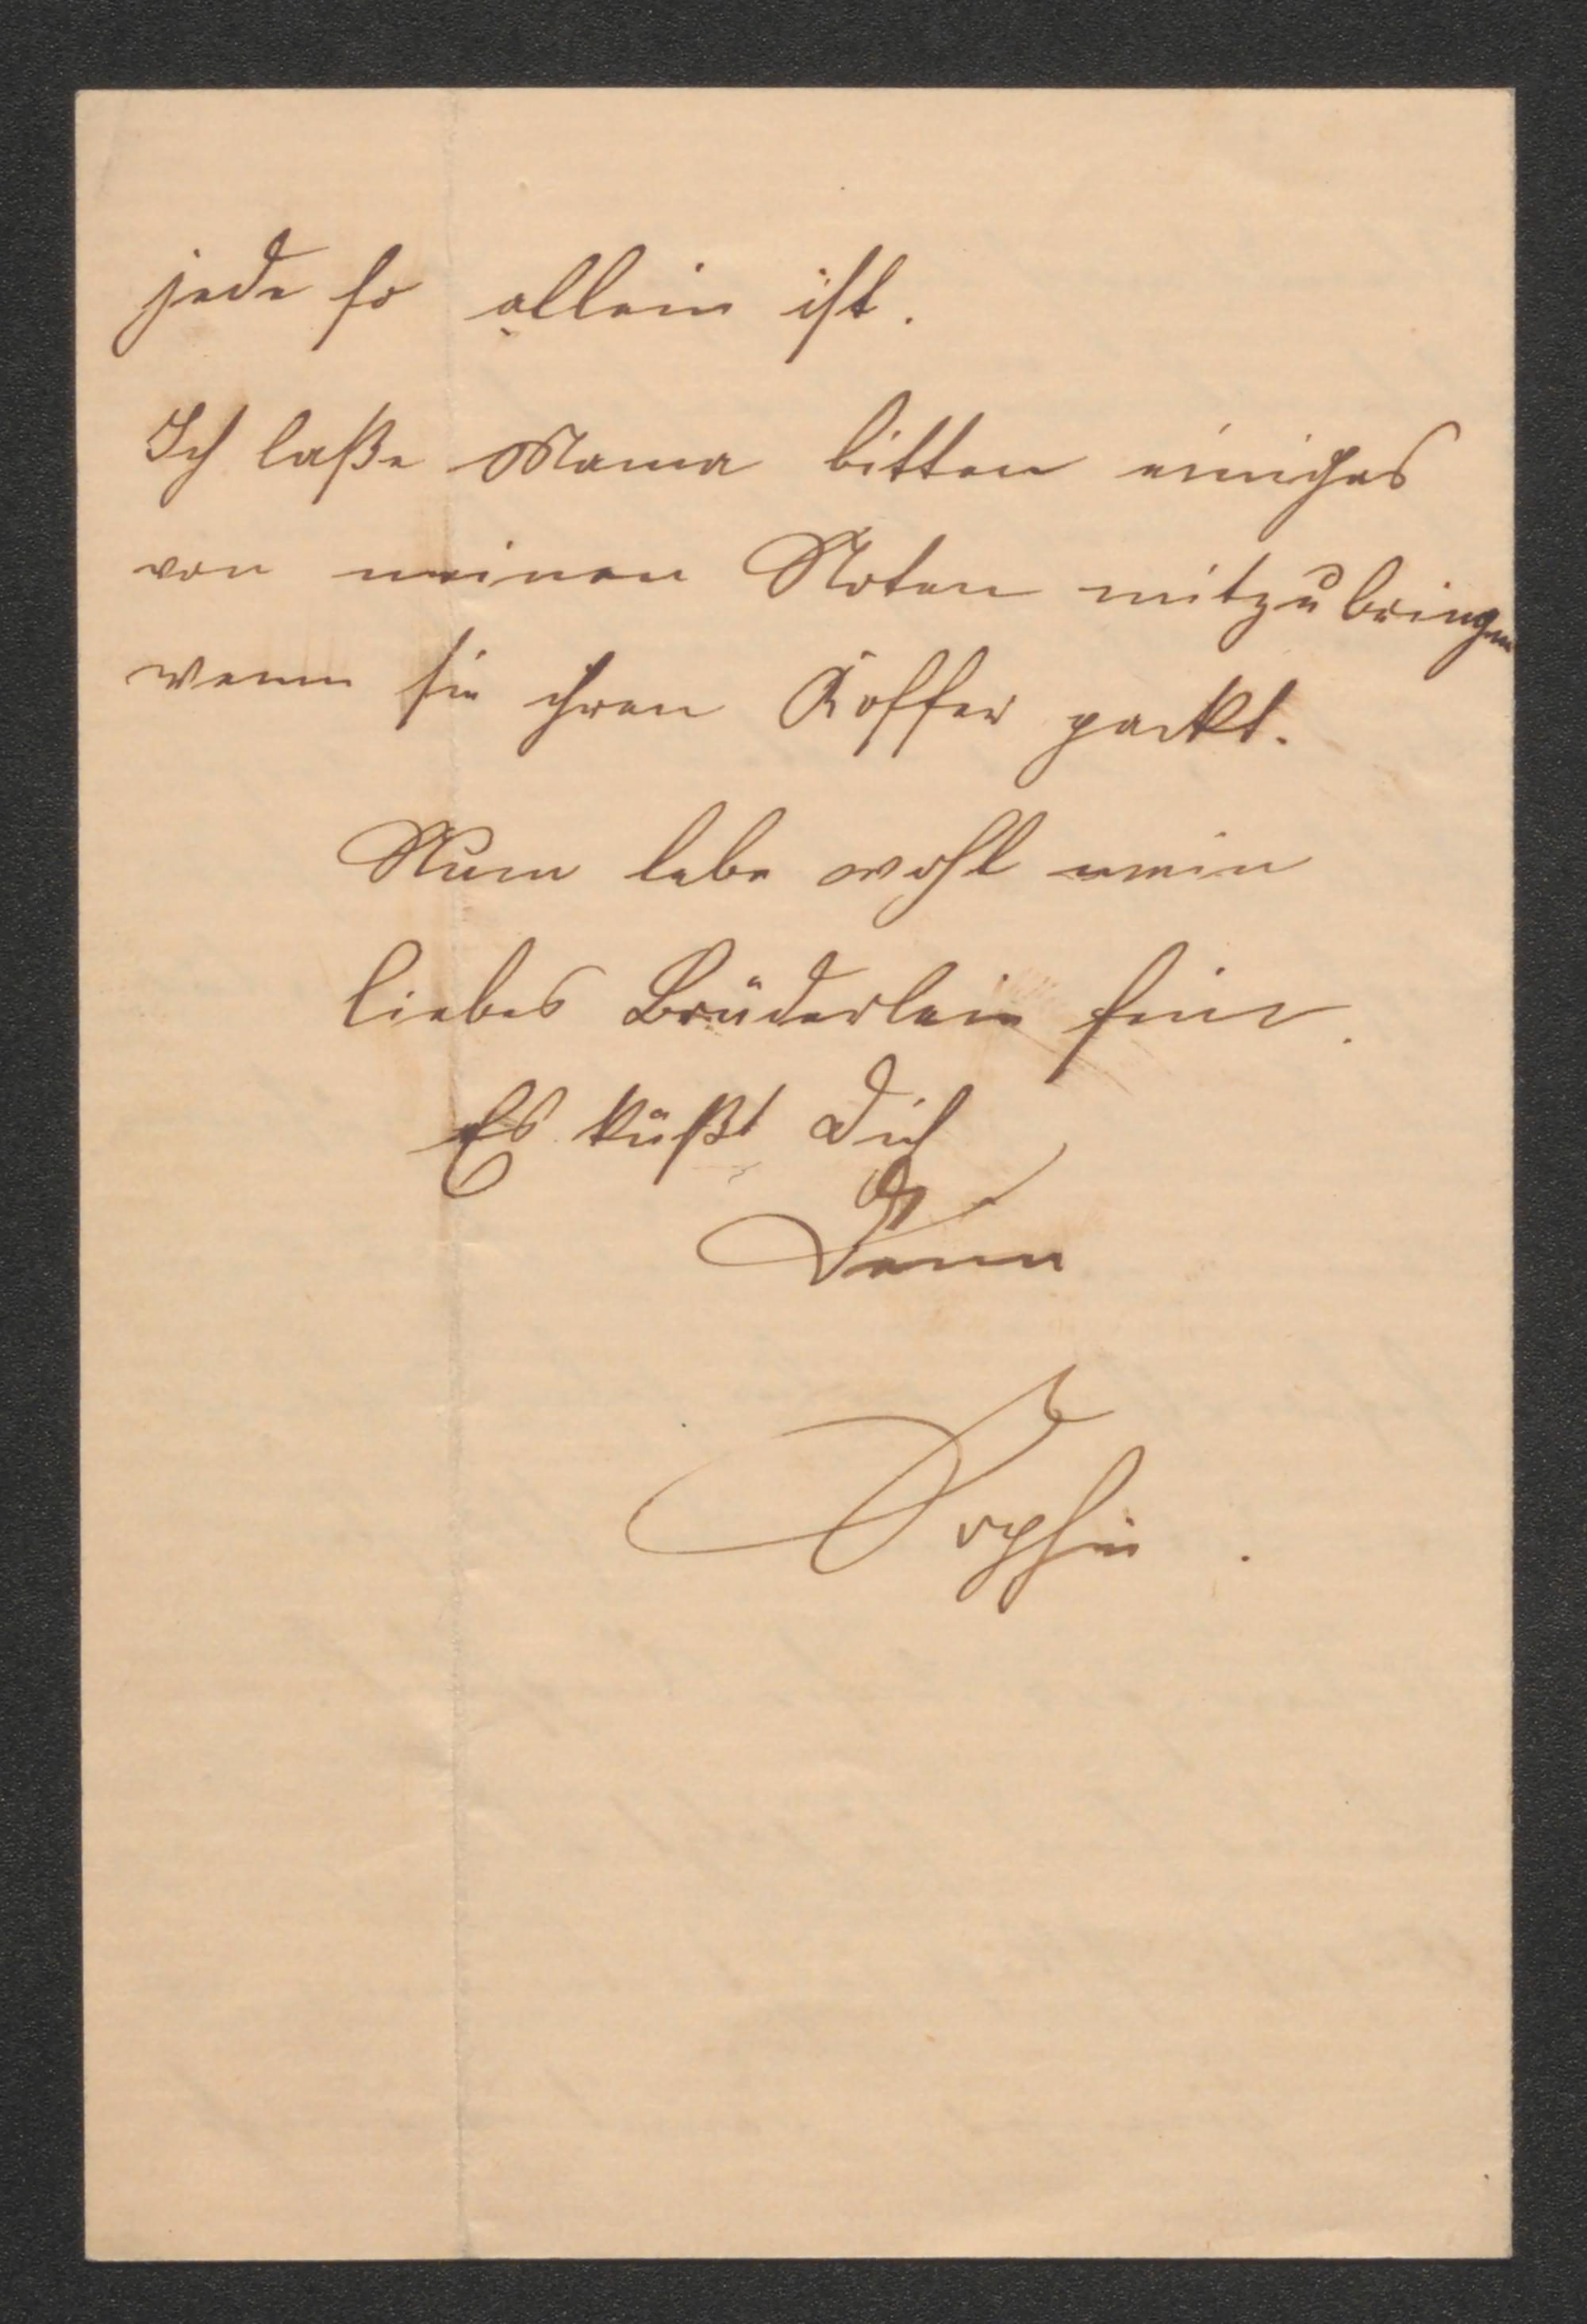 jede so allein ist.
Ich laße Mama bitten einiges
von meinen Noten mitzubringen
wenn sie ihren Koffer packt.
Nun lebe wohl mein
liebes Brüderlein fein.
Es küßt Dich
Deine
Sophie.